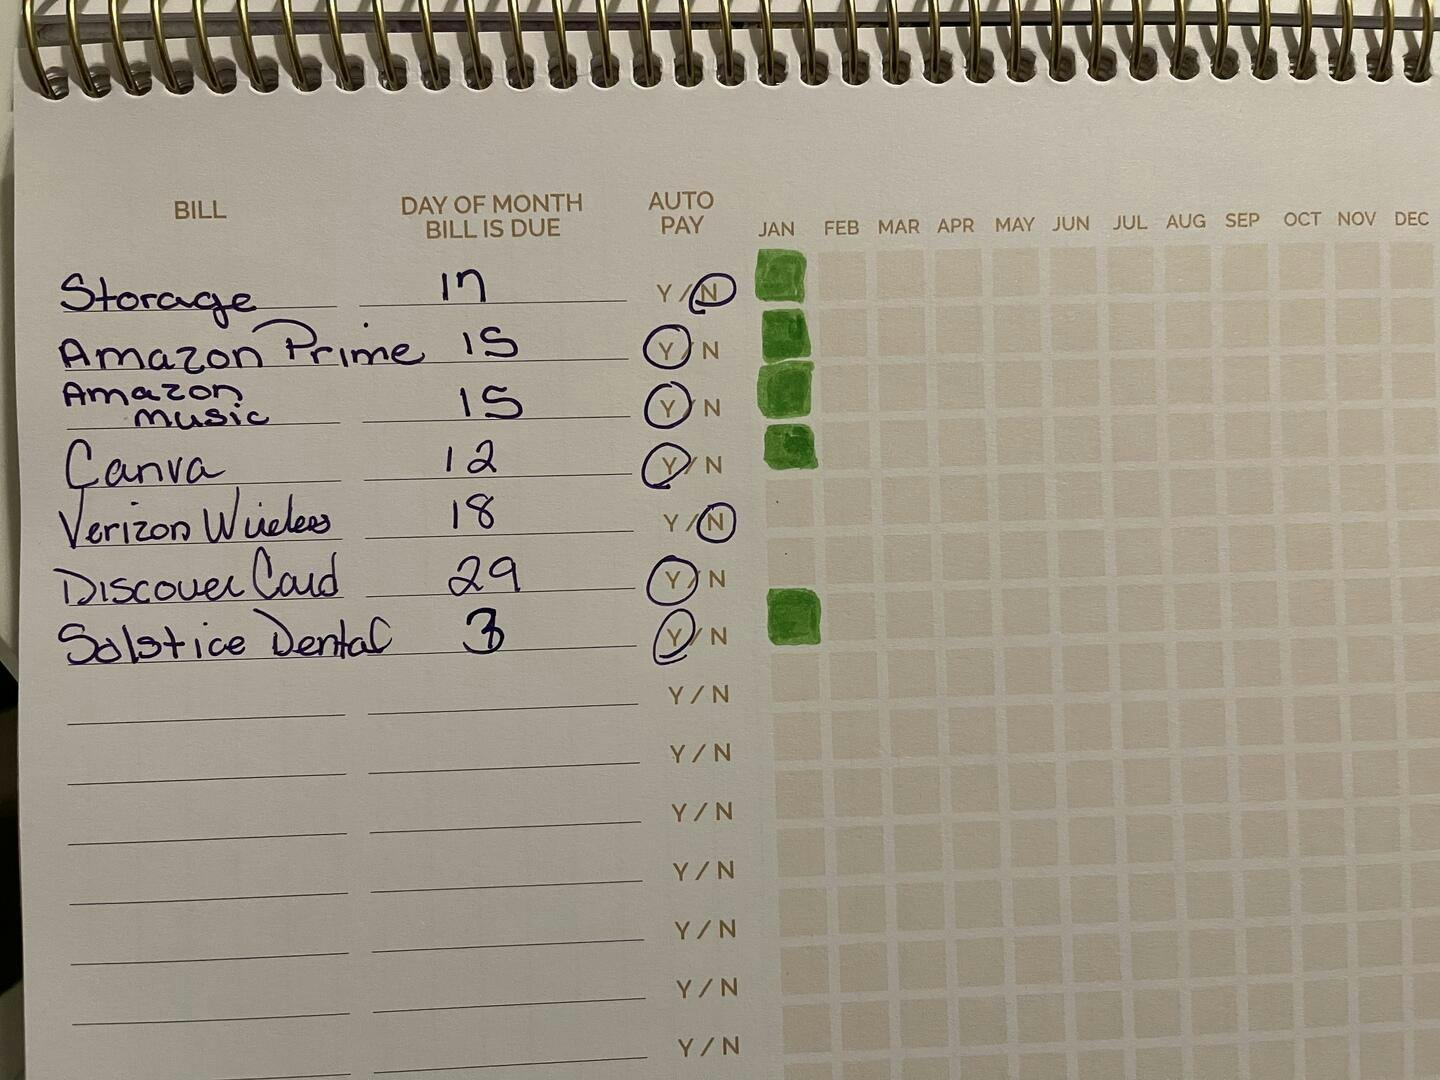 BILL DAY OF MONTH BILL IS DUE AUTO PAY JAN FEB MAR APR MAY JUN JUL AUG SEP OCT NOV DEC
Storage 17 Y / N
Amazon Prime 15 Y / N
Amazon music 15 Y / N
Canva 12 Y / N
Verizon Wireless 18 Y / N
Discover Card 29 Y / N
Solstice Dental 3 Y / N
Y / N
Y / N
Y / N
Y / N
Y / N
Y / N
Y / N